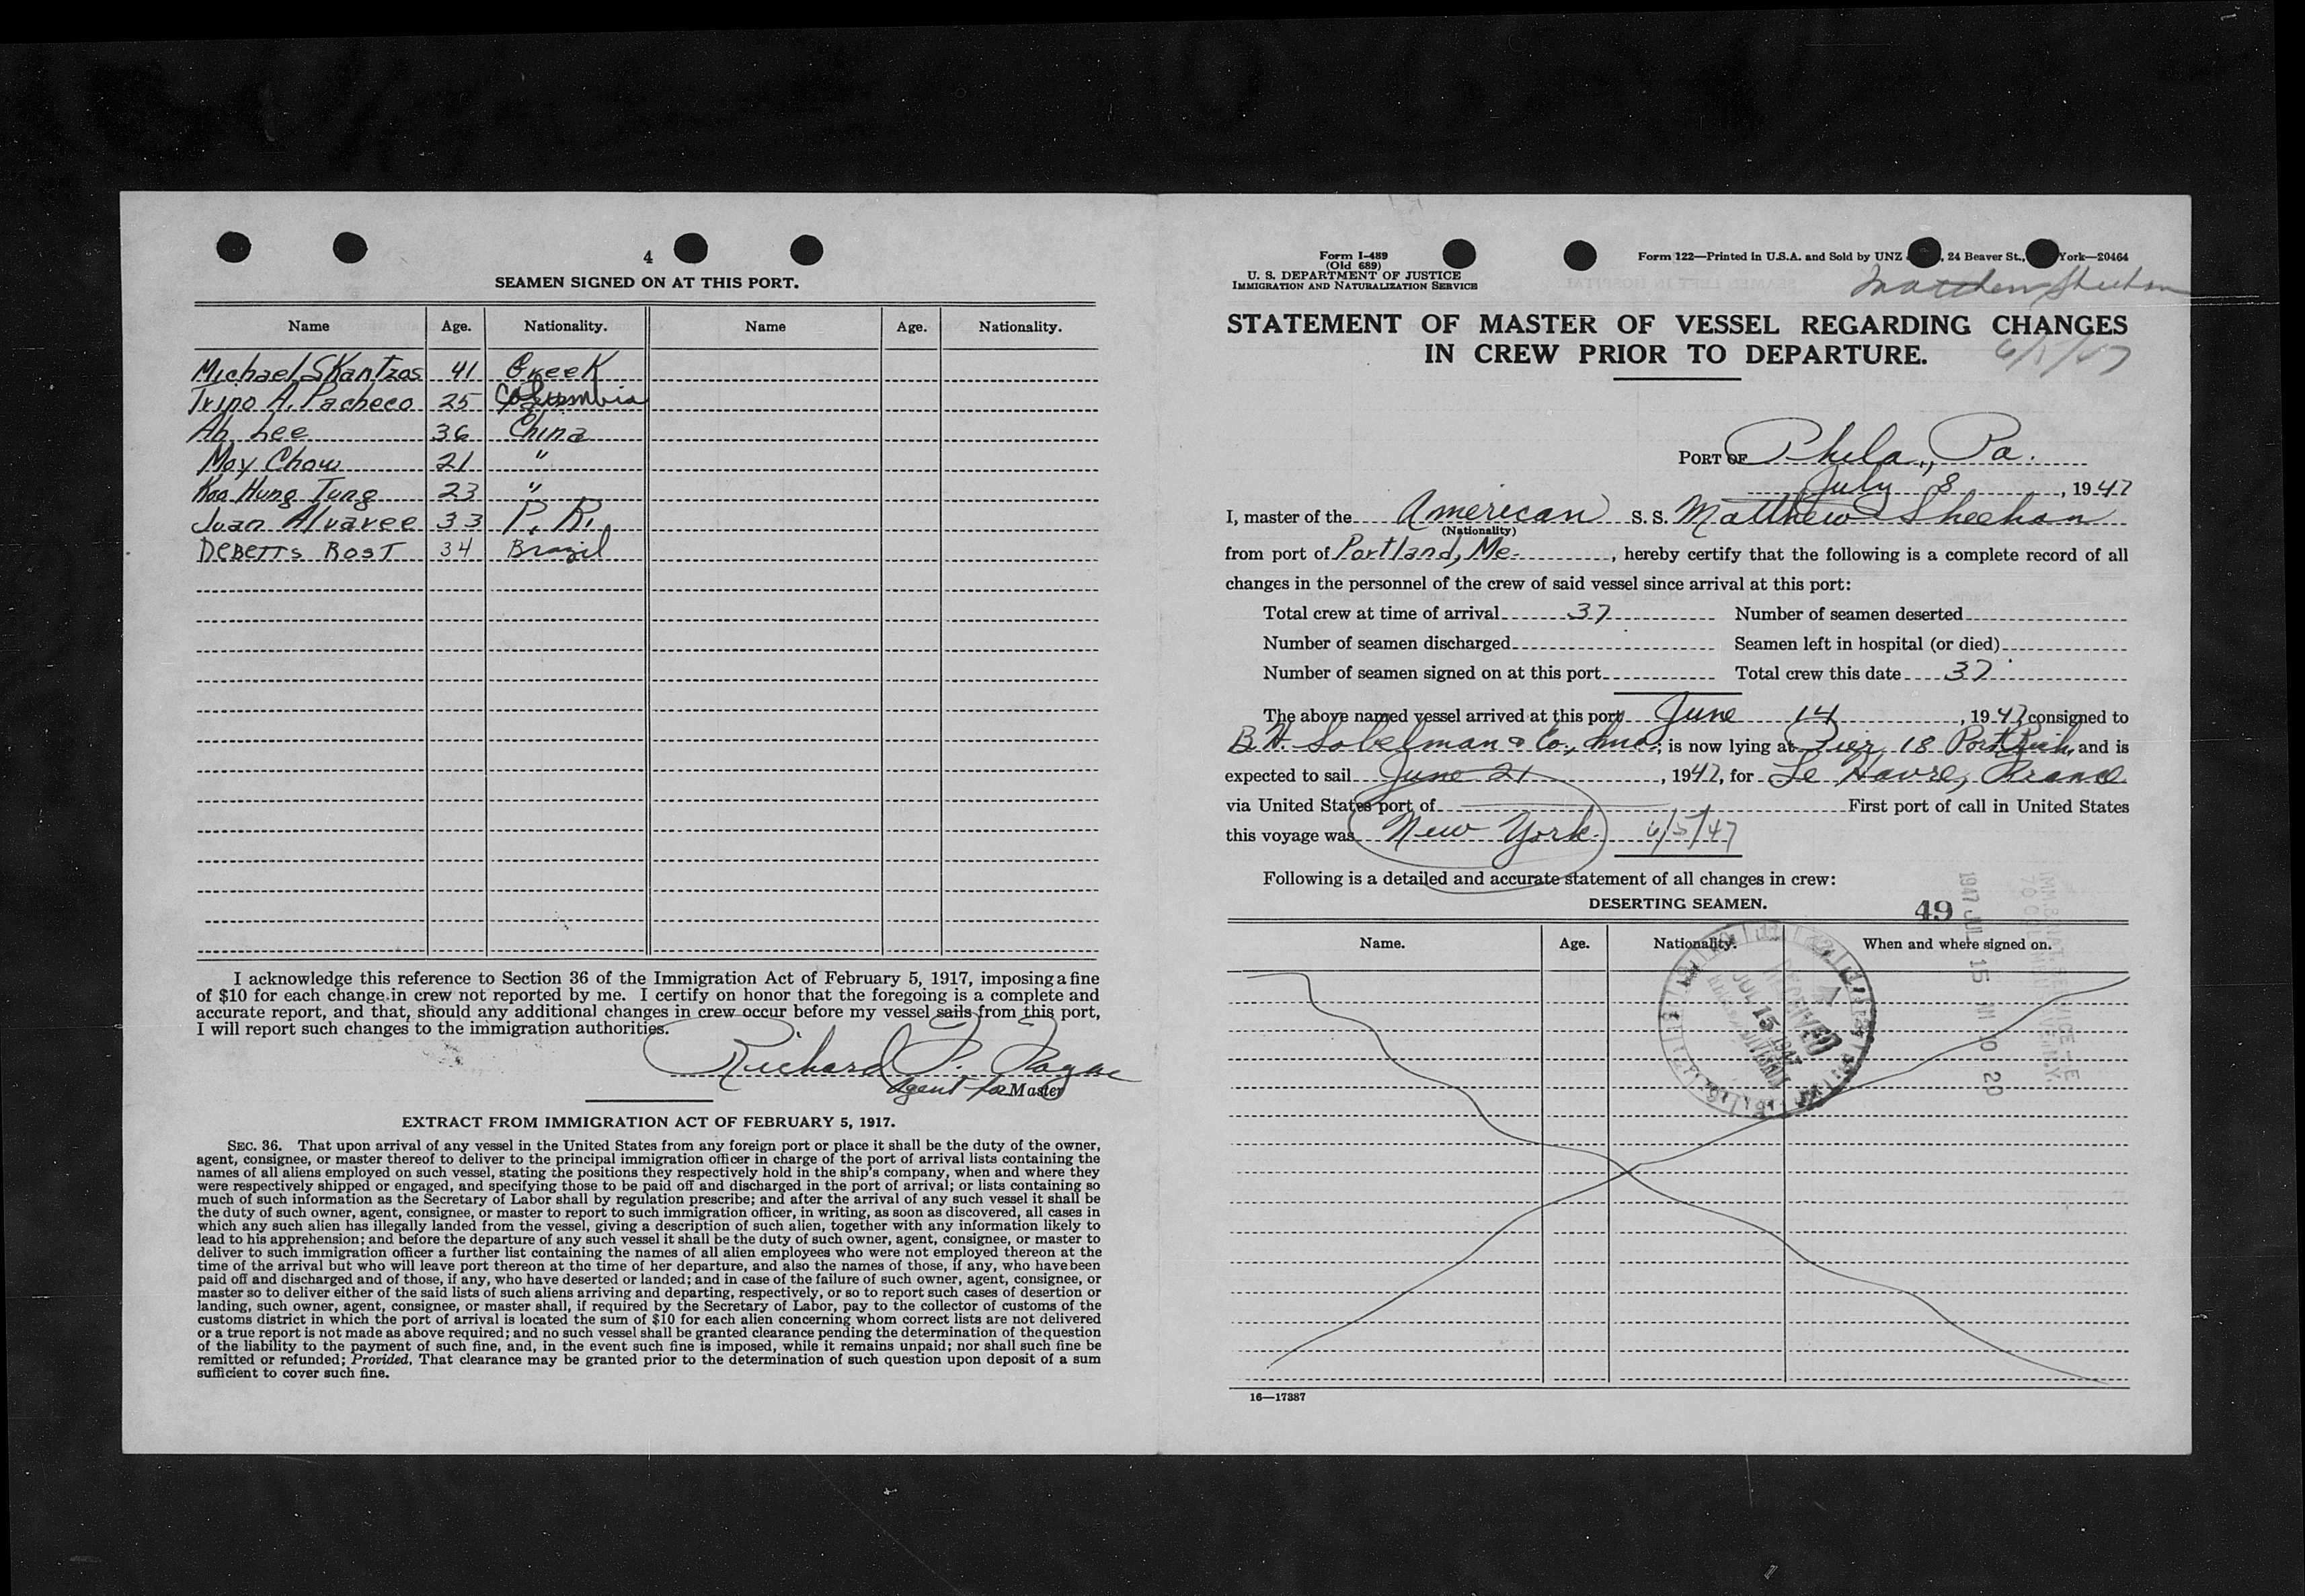 4
SEAMEN SIGNED ON AT THIS PORT.
Name Age. Nationality. Name Age. Nationality.
Michael Skantzos 41 Greek
Trino A. Pacheco 25 Columbia
Ah Lee 36 China
Moy Chow 21 "
Koo Hung Tung 23 "
Juan Alvaree 33 P. R.
DEBETTS ROST 34 Brazil
I acknowledge this reference to Section 36 of the Immigration Act of February 5, 1917, imposing a fine
of $10 for each change in crew not reported by me. I certify on honor that the foregoing is a complete and
accurate report, and that, should any additional changes in crew occur before my vessel sails from this port,
I will report such changes to the immigration authorities.
Richard F.
Agent for Master
EXTRACT FROM IMMIGRATION ACT OF FEBRUARY 5, 1917.
SEC. 36. That upon arrival of any vessel in the United States from any foreign port or place it shall be the duty of the owner,
agent, consignee, or master thereof to deliver to the principal immigration officer in charge of the port of arrival lists containing the
names of all aliens employed on such vessel, stating the positions they respectively hold in the ship's company, when and where they
were respectively shipped or engaged, and specifying those to be paid off and discharged in the port of arrival; or lists containing so
much of such information as the Secretary of Labor shall by regulation prescribe; and after the arrival of any such vessel it shall be
the duty of such owner, agent, consignee, or master to report to such immigration officer, in writing, as soon as discovered, all cases in
which any such alien has illegally landed from the vessel, giving a description of such alien, together with any information likely to
lead to his apprehension; and before the departure of any such vessel it shall be the duty of such owner, agent, consignee, or master to
deliver to such immigration officer a further list containing the names of all alien employees who were not employed thereon at the
time of the arrival but who will leave port thereon at the time of her departure, and also the names of those, if any, who have been
paid off and discharged and of those, if any, who have deserted or landed; and in case of the failure of such owner, agent, consignee, or
master so to deliver either of the said lists of such aliens arriving and departing, respectively, or so to report such cases of desertion or
landing, such owner, agent, consignee, or master shall, if required by the Secretary of Labor, pay to the collector of customs of the
customs district in which the port of arrival is located the sum of $10 for each alien concerning whom correct lists are not delivered
or a true report is not made as above required; and no such vessel shall be granted clearance pending the determination of the question
of the liability to the payment of such fine, and, in the event such fine is imposed, while it remains unpaid; nor shall such fine be
remitted or refunded; Provided, That clearance may be granted prior to the determination of such question upon deposit of a sum
sufficient to cover such fine.
Form I-489
(Old 689)
U. S. DEPARTMENT OF JUSTICE
IMMIGRATION AND NATURALIZATION SERVICE
Form 122—Printed in U.S.A. and Sold by UNZ , 24 Beaver St., York—20464
Matthew Sheehan
STATEMENT OF MASTER OF VESSEL REGARDING CHANGES
IN CREW PRIOR TO DEPARTURE.
6/5/47
PORT OF Phila., Pa.
July 8, 1947
I, master of the American S. S. Matthew Sheehan
(Nationality)
from port of Portland, Me., hereby certify that the following is a complete record of all
changes in the personnel of the crew of said vessel since arrival at this port:
Total crew at time of arrival 37 Number of seamen deserted
Number of seamen discharged Seamen left in hospital (or died)
Number of seamen signed on at this port Total crew this date 37
The above named vessel arrived at this port June 14, 1947 consigned to
B. H. Sobelman & Co., Inc; is now lying at Pier 18 Port Rich, and is
expected to sail June 21, 1947, for Le Havre, France
via United States port of First port of call in United States
this voyage was New York 6/5/47
Following is a detailed and accurate statement of all changes in crew:
DESERTING SEAMEN.
49
Name. Age. Nationality. When and where signed on.
RECEIVED
JUL 15 1947
1947 JUL 15 10 20
16—17387